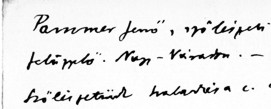 Pammer Jenő, szőlészeti
felügyelő. Nagy-Váradon. —
Szőlészetünk haladása c.